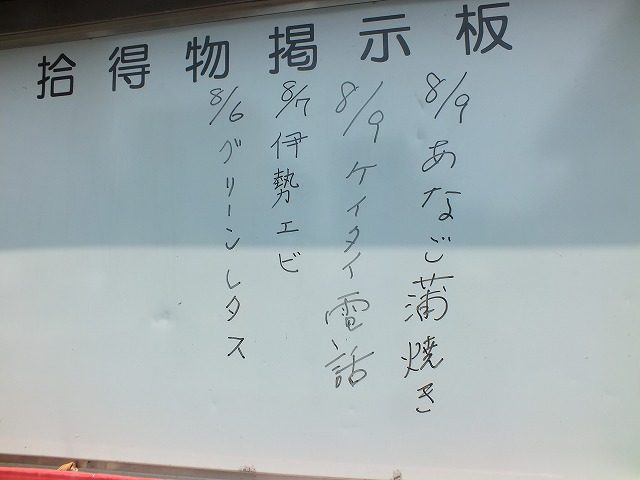 拾得物掲示板
8/9 あなご蒲焼き
8/9 ケイタイ電話
8/7 伊勢エビ
8/6 グリーンレタス